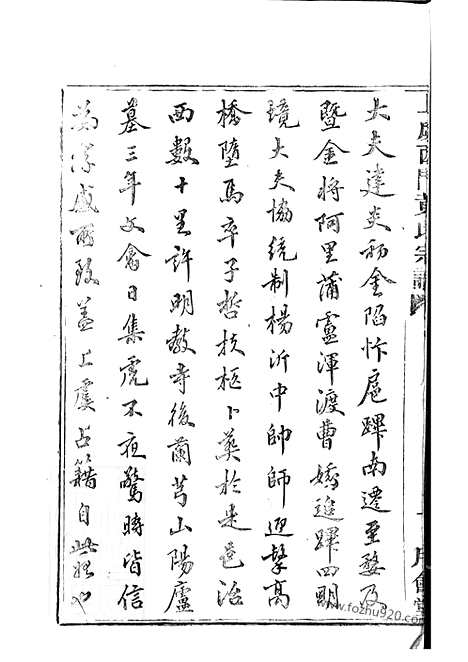 大夫達炎初金陷忤扈蹕南遷至婺及
暨金將阿里蒲盧渾渡曹娥追蹕四明
境大夫協統制楊沂中帥師迎擊高
橋墮馬卒子哲扶柩卜葬於是邑治
西數十里許明教寺後蘭芎山陽廬
墓三年文禽日集虎不夜驚時皆信
為孝感所致蓋上虞占籍自此始也
上虞西門黃氏宗譜
www.fozhu920.com